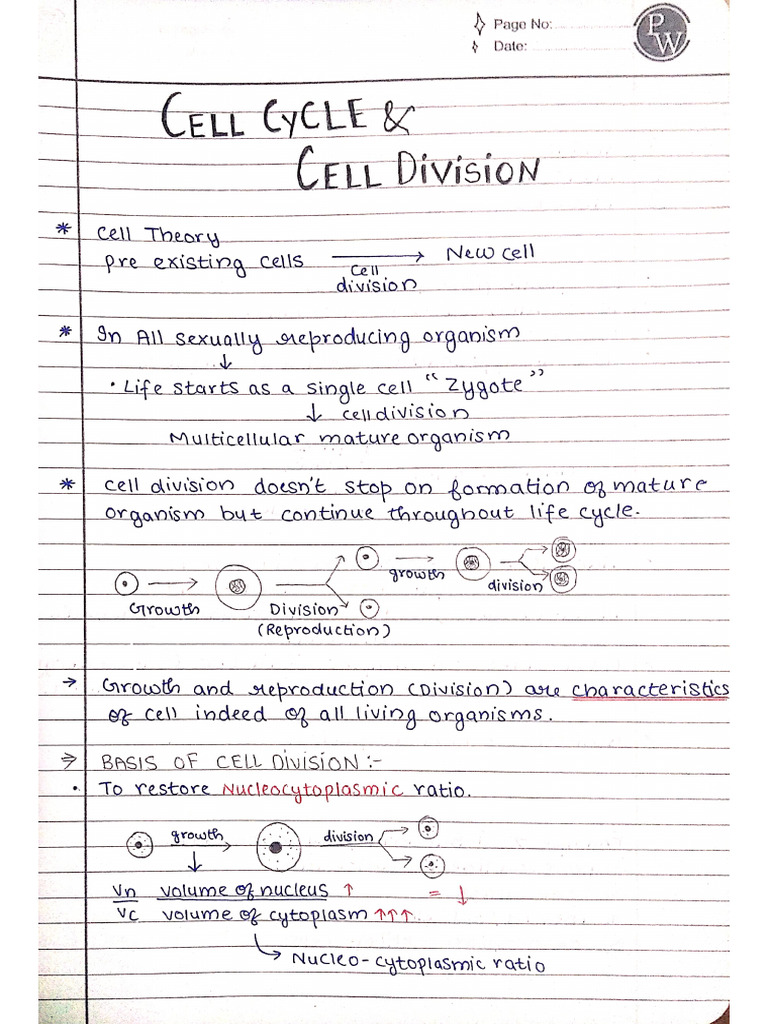 Page No:
Date:
PW
CELL CYCLE &
CELL DIVISION
* Cell Theory
pre existing cells ⟶ New cell
Cell
division
* In All sexually reproducing organism
↓
• Life starts as a single cell “Zygote”
↓ cell division
Multicellular mature organism
* cell division doesn't stop on formation of mature
organism but continue throughout life cycle.
Growth
Division
(Reproduction)
growth
division
→ Growth and reproduction (Division) are characteristics
of cell indeed of all living organisms.
⇒ BASIS OF CELL DIVISION :-
• To restore Nucleocytoplasmic ratio.
growth
division
Vn volume of nucleus ↑ = ↓
Vc volume of cytoplasm ↑↑↑
↳ Nucleo-cytoplasmic ratio